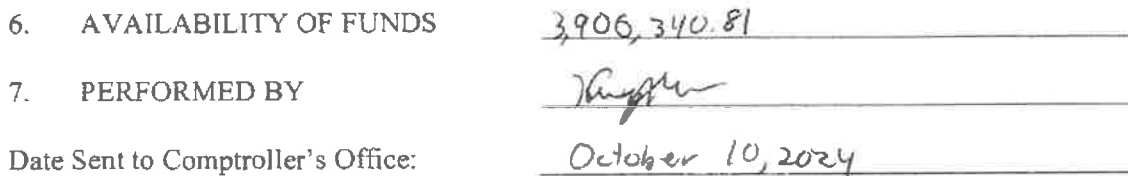 6. AVAILABILITY OF FUNDS 3,906,340.81
7. PERFORMED BY
Date Sent to Comptroller's Office: October 10, 2024